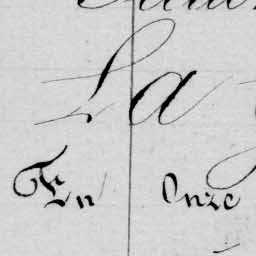 La
En Onze